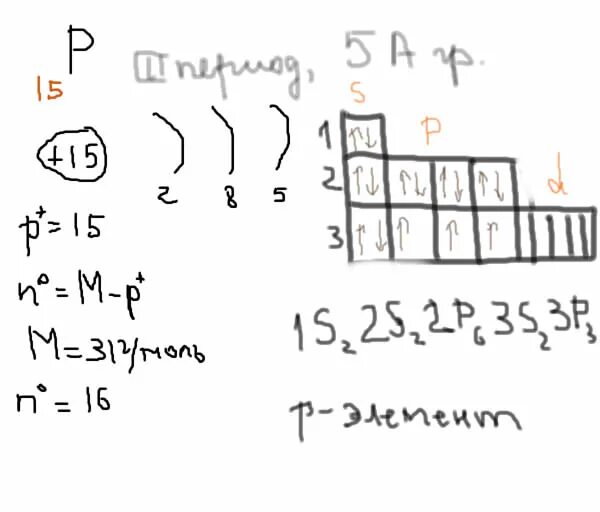 P
15
III период, 5 А гр.
+15
2 8 5
s
p
d
1 ↑↓
2 ↑↓ ↑↓ ↑↓ ↑↓
3 ↑↓ ↑ ↑ ↑
p⁺ = 15
n⁰ = M - p⁺
M = 31 г/моль
n⁰ = 16
1S₂ 2S₂ 2P₆ 3S₂ 3P₃
p - элемент